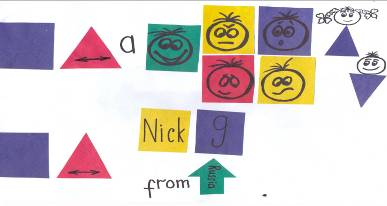 a
Nick g
from Russia .